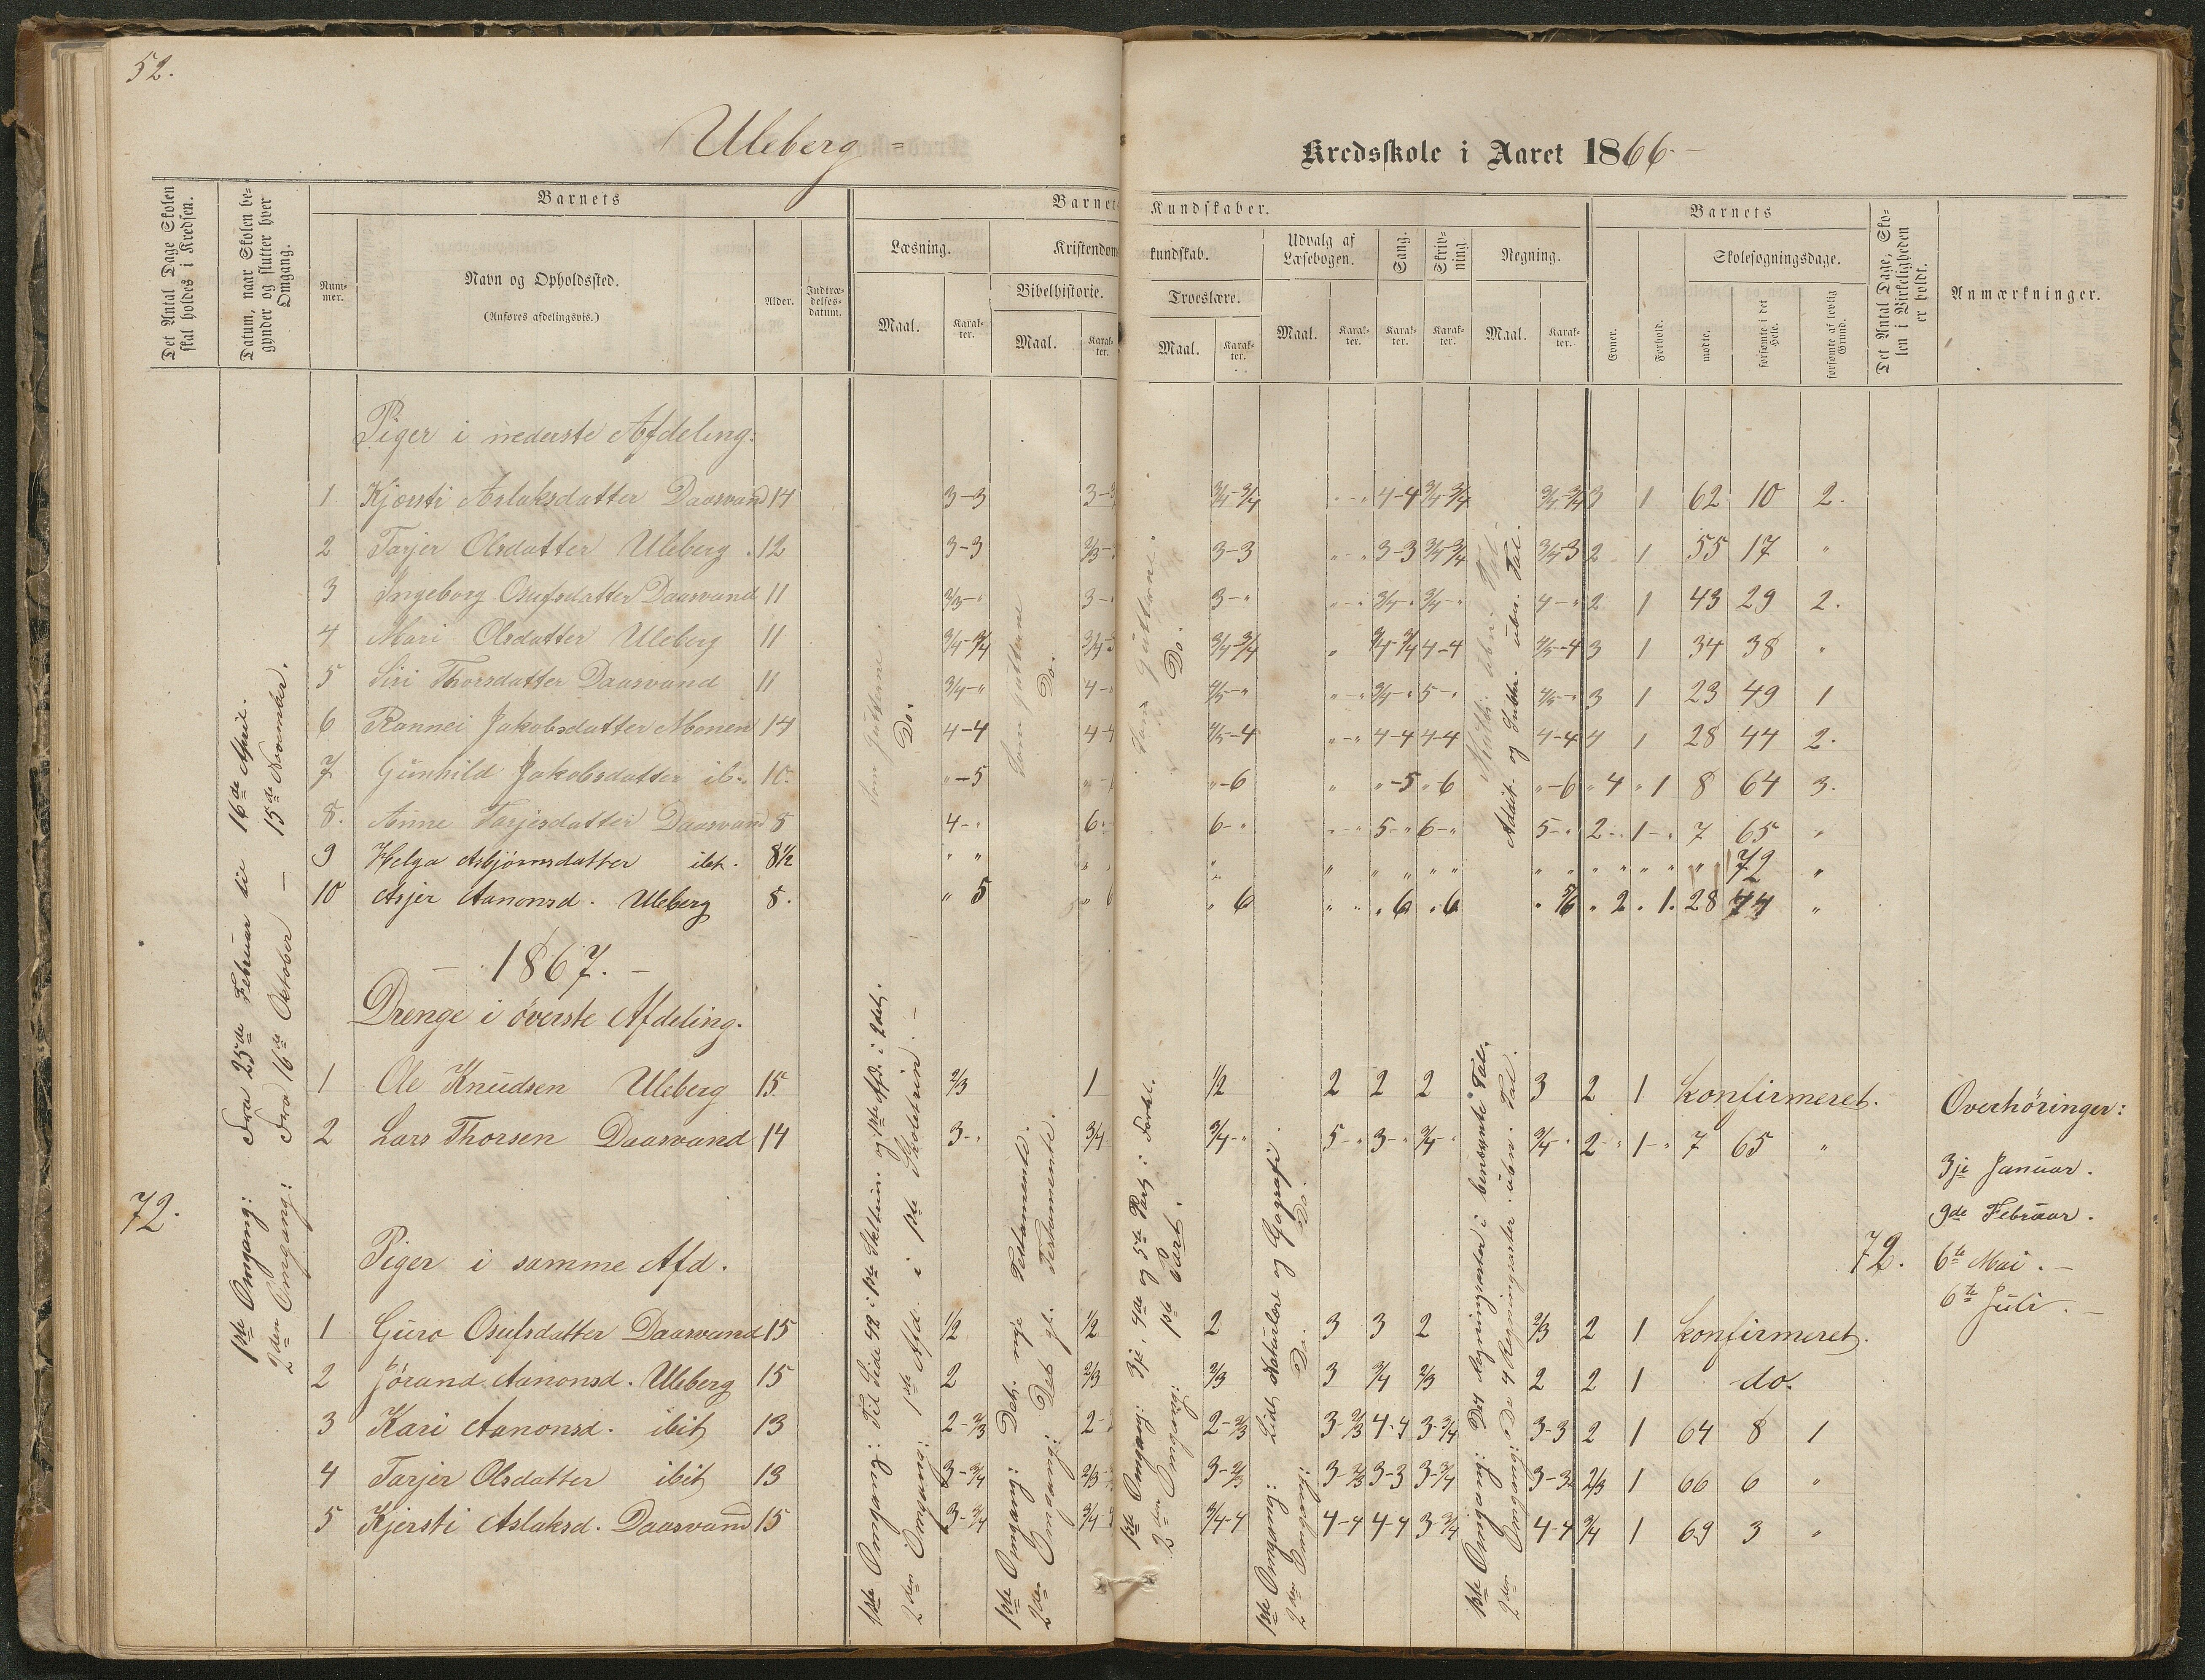 52.
Uleberg =
Kredsskole i Aaret 1866 -
Det Antal Dage Skolen skal holdes i Kredsen.
Datum, naar Skolen begynder og slutter hver Omgang.
Barnets
Num-mer.
Navn og Opholdssted.
(Anføres afdelingsvis.)
Alder.
Indtræ-delses-datum.
Barnets
Kundskaber.
Læsning.
Kristendoms
kundskab.
Bibelhistorie.
Troeslære.
Udvalg af Læsebogen.
Sang.
Skriv-ning.
Regning.
Maal. Karak-ter. Maal. Karak-ter. Maal. Karak-ter. Maal. Karak-ter. Karak-ter. Karak-ter. Maal. Karak-ter.
Barnets
Evner.
Forhold.
Skolesøgningsdage.
mødte.
forsømte i det Hele.
forsømte af lovlig Grund.
Det Antal Dage, Sko-len i Virkeligheden er holdt.
Anmærkninger.
Piger i nederste Afdeling:
1 Kjersti Aslaksdatter Daasvand 14 3-3 3-3 3/4-3/4 "-" 4-4 3/4-3/4 3/4-3/4 3 1 62 10 2.
2 Tarjer Olsdatter Uleberg . 12 3-3 2/3- 3-3 "-" 3-3 3/4-3/4 3/4-3 2 1 55 17 "
3 Ingeborg Osulfsdatter Daasvand 11 2/3-" 3-" 3-" "-" 3/4-" 3/4-" 4-" 2 1 43 29 2.
4 Mari Olsdatter Uleberg 11 3/4-3/4 3/4-3 3/4-3/4 " 3/4-3/4 4-4 4/5-4 3 1 34 38 "
5 Siri Thorsdatter Daasvand 11 3/4-" 4-" 4/5-" "-" 3/4-" 5-" 4/5-" 3 1 23 49 1
6 Rannei Jakobsdatter Monen 14 4-4 4-4 4/5-4 "-" 4-4 4-4 4-4 4 1 28 44 2.
7 Gunhild Jakobsdatter ib. 10. "-5 "-6 "-6 " "-5 "6 "-6 "4 "1 8 64 3.
8. Anne Tarjesdatter Daasvand 8 4-" 6-" 6-" "-" 5-" 6-" 5-" 2-" 1-" 7 65 "
9 Helga Asbjørnsdatter ibt. 8½ " " " " " " " " " " " " " " 72 "
10 Asjer Aanonsd. Uleberg 8. " 5 " 6 " 6 " " " 6 " 6 " 5/6 " 2 . 1. 28 44 "
Som Gutterne
Do.
Som Gutterne
Do.
Som Gutterne
Do.
Addit. og Subtr. uben. Tal.
- 1867. -
Drenge i øverste Afdeling.
1 Ole Knudsen Uleberg 15. 2/3 1 1/2 2 2 2 3 2 1 konfirmeret.
2 Lars Thorsen Daasvand 14 3-" 3/4 3/4-" 5-" 3-" 3/4-" 3/4-" 2-" 1-" 7 65 "
Piger i samme Afd.
1 Guro Osulsdatter Daasvand 15 1/2 1/2 2 3 3 2 2/3 2 1 konfirmeret.
2 Jørand Aanonsd. Uleberg 15 2 2/3 2/3 3 3/4 2/3 2 2 1 do.
3 Kari Aanonsd. ibit 13 2-2/3 2- 2-2/3 3-2/3 4-4 3-3/4 3-3 2 1 64 8 1
4 Tarjer Olsdatter ibit 13 3-3/4 2/3- 3-2/3 3-2/3 3-3 3-3/4 3-3 2/3 1 66 6 "
5 Kjersti Aslaksd. Daasvand 15 3-3/4 3/4- 3/4-4 4-4 4-4 3-3/4 4-4 3/4 1 69 3 "
72.
1ste Omgang: Fra 25de Februar til 16de April.
2den Omgang: Fra 16de October - 15de November.
1ste Omgang: Til Side 48 i 1ste og 1ste Afd. i 2det.
2den Omgang: 1ste Afd. i 1ste Skoletrin. -
1ste Omgang: Det nye Testamente.
2den Omgang: Det gl. Testamente.
1ste Omgang: 3je, 4de og 5te Part i Forkl.
2den Omgang: 1ste Part.
1ste Omgang: Lidt Naturlære og Geografi.
2den Omgang: Do. Do.
1ste Omgang: De 4 Regningsarter i benævnte Tal.
2den Omgang: De 4 Regningsarter i uben. Tal.
72.
Overhøringer:
3je Januar.
9de Februar.
6te Mai. -
6te Juli. -